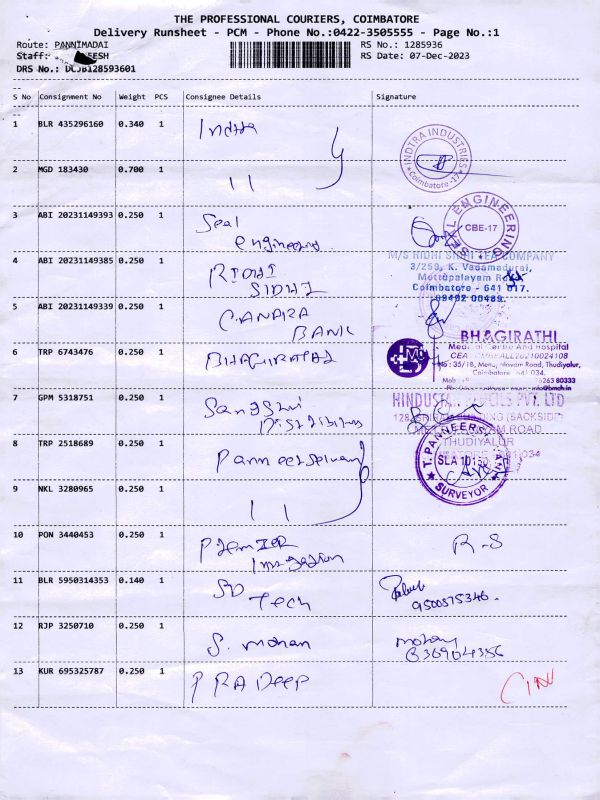 THE PROFESSIONAL COURIERS, COIMBATORE
Delivery Runsheet - PCM - Phone No.:0422-3505555 - Page No.:1
Route: PANNIMADAI RS No.: 1285936
Staff: RS Date: 07-Dec-2023
DRS No.: DCJB128593601
S No Consignment No Weight PCS Consignee Details Signature
1 BLR 435296160 0.340 1 Indtra
INDTRA INDUSTRIES
Coimbatore-17
2 MGD 183430 0.700 1 11
3 ABI 20231149393 0.250 1 Seal
engineering
SEAL ENGINEERING
CBE-17
4 ABI 20231149385 0.250 1 RIDHI
SIDHI
M/S RIDHI SIDHI TEA COMPANY
3/259, K. Vadamadurai,
Mettupalayam Road
Coimbatore - 641 017.
99402 00489.
5 ABI 20231149339 0.250 1 CANARA
BANK
6 TRP 6743476 0.250 1 BHAGIRATHI
BHAGIRATHI
Medical Centre And Hospital
No : 35/18, Mettupalayam Road, Thudiyalur,
Coimbatore - 641 034.
7 GPM 5318751 0.250 1 Sangshri
Distributors
HINDUSTAN PENCILS PVT. LTD
(BACKSIDE)
METTUPALAYAM ROAD
THUDIYALUR
8 TRP 2518689 0.250 1 Panneerselvam
T. PANNEERSELVAM
SLA
SURVEYOR
9 NKL 3280965 0.250 1 11
10 PON 3440453 0.250 1 Premier
Irrigation R-S
11 BLR 5950314353 0.140 1 SD
Tech
9500575346.
12 RJP 3250710 0.250 1 S. mohan mohan
836904356
13 KUR 695325787 0.250 1 PRADEEP